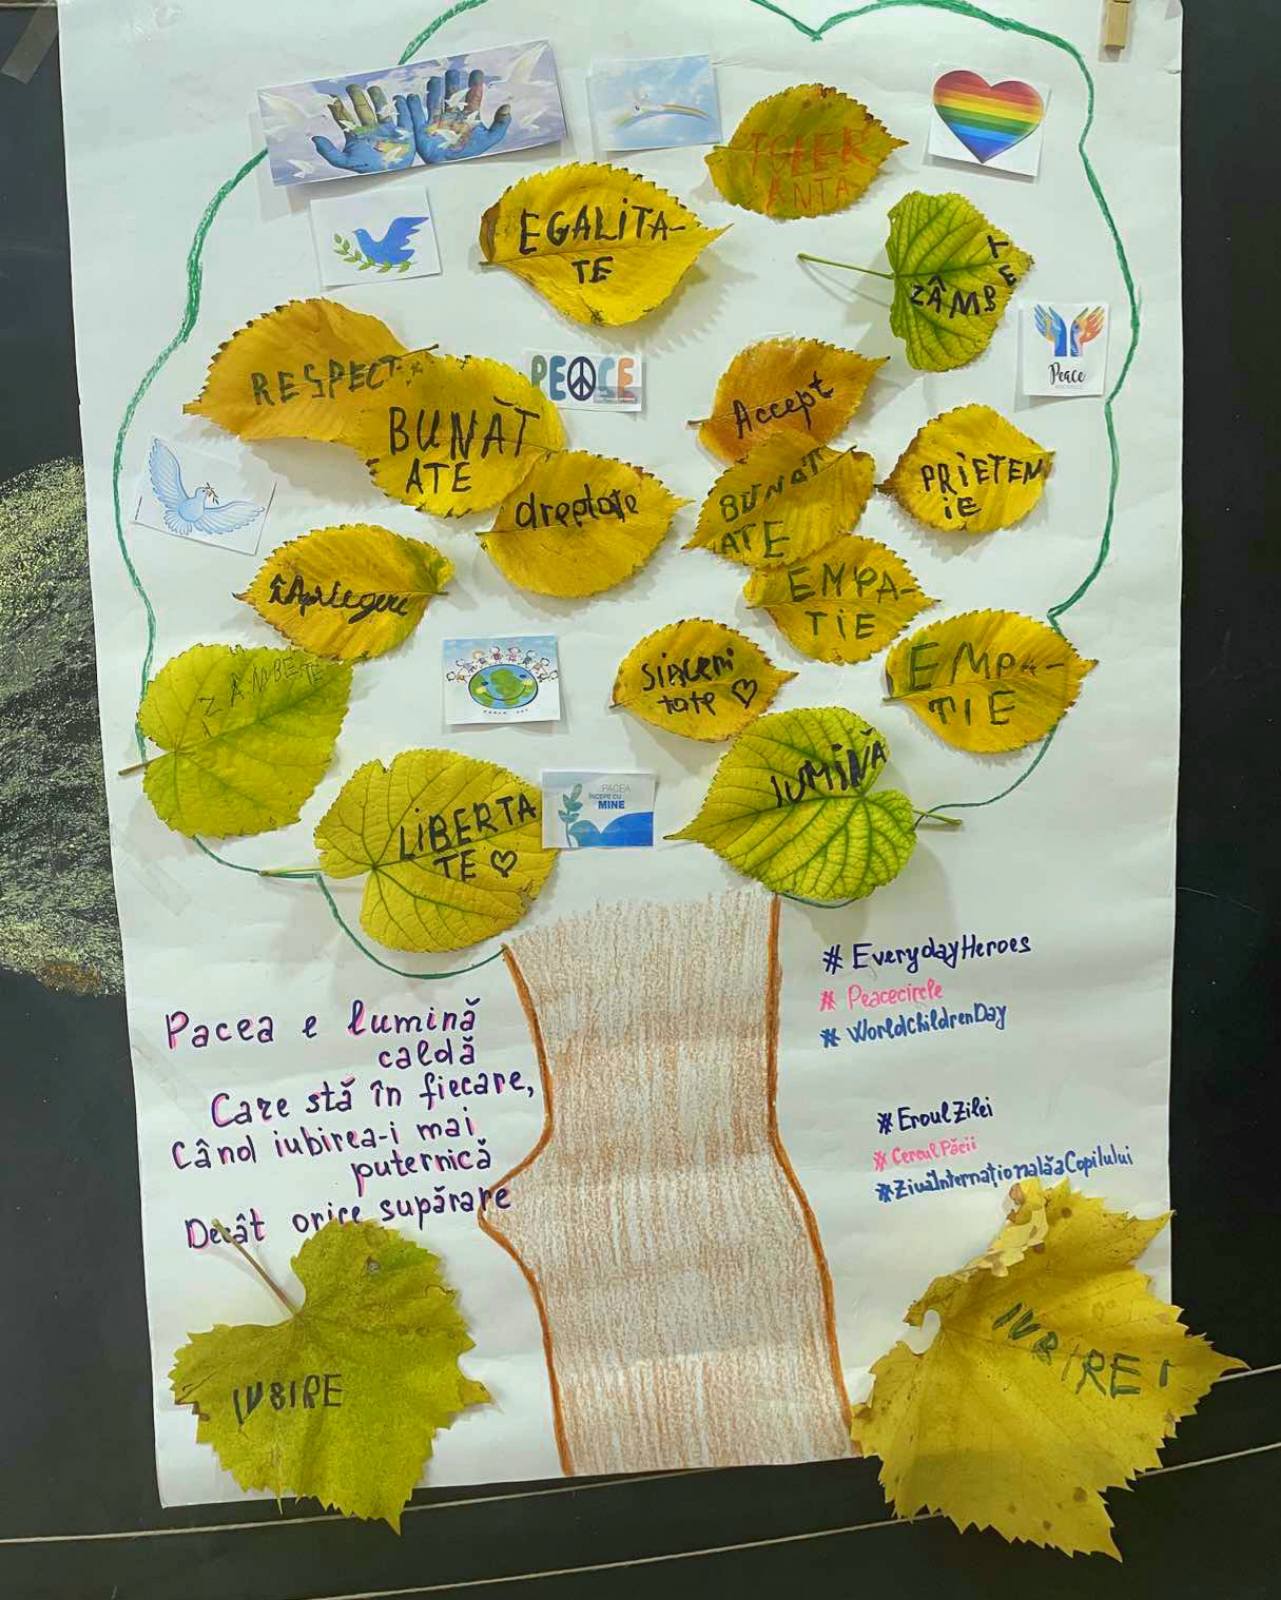 TOLER
ANTA
EGALITA-
TE
ZÂMBETE
RESPECT
PEACE
Peace
BUNĂT
ATE
Accept
PRIETEN
IE
dreptate
BUNĂT
ATE
EMPA-
TIE
înțelegere
ZÂMBETE
sinceri
tate ♡
EMPA-
TIE
LUMINĂ
PACEA
ÎNCEPE CU
MINE
LIBERTA
TE ♡
# EverydayHeroes
# Peacecircle
# WorldChildrenDay
Pacea e lumină
caldă
Care stă în fiecare,
Când iubirea-i mai
puternică
Decât orice supărare
# EroulZilei
# CerculPăcii
# ZiuaInternaționalăaCopilului
IUBIRE
IUBIRE!